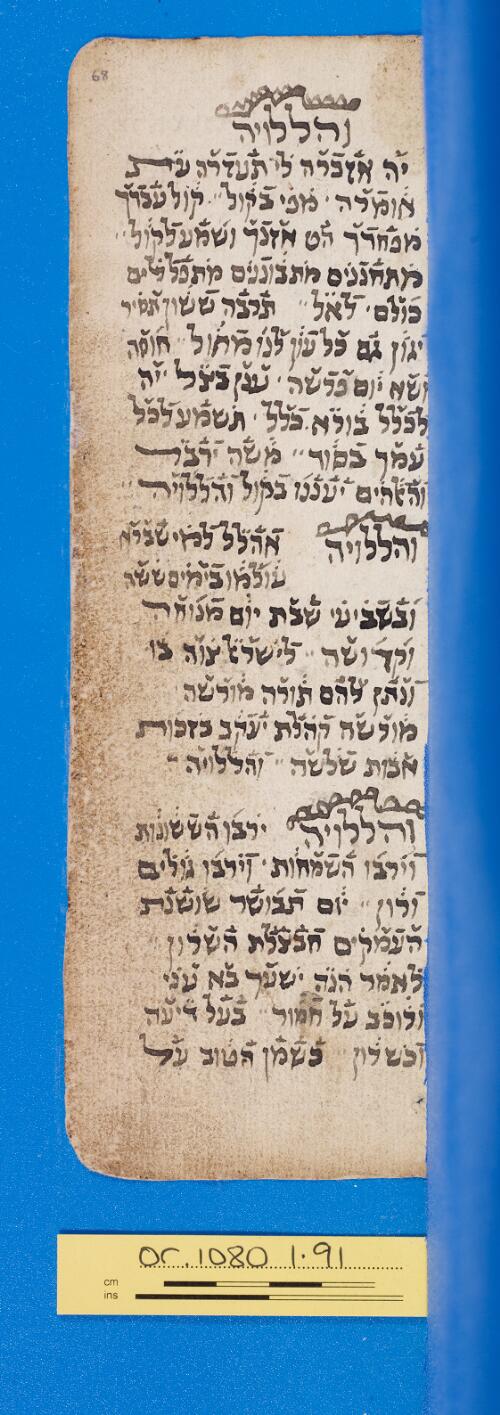 68
והללויה
יה אזברה לי תעזרה עת
אומרה מפי בקול קול עבדך
מפחדך הט אזנך ושמע לקול
מתחננים מתבוננים מתפללים
כולם לאל תרבה ששון תסיר
יגון גם כל עון לנו מחול חוסה
משא יום בדשה ענן בצל יה
לכלל בורא כלל תשמע לכל
עמך בסוד משה ירבת
והשהים יעננו בקול והללויה
והללויה אהלל למי שברא
עולמו בימים ששה
ובשביעי שבת יום מנוחה
וקדושה לישראל צוה בו
ונתן להם תורה מורשה
מורשה קהלת יעקב בזכות
אבות שלשה והללויה
והללויה ירבון הששונות
וירבו השמחות וירבו גילים
ורון יום תבושר שושנת
העמקים חבצלת השרון
לאמר הנה ישעך בא עני
ורוכב על חמור בעל דיעה
וכשרון כשמן הטוב על
or.1080 1.91
cm
ins